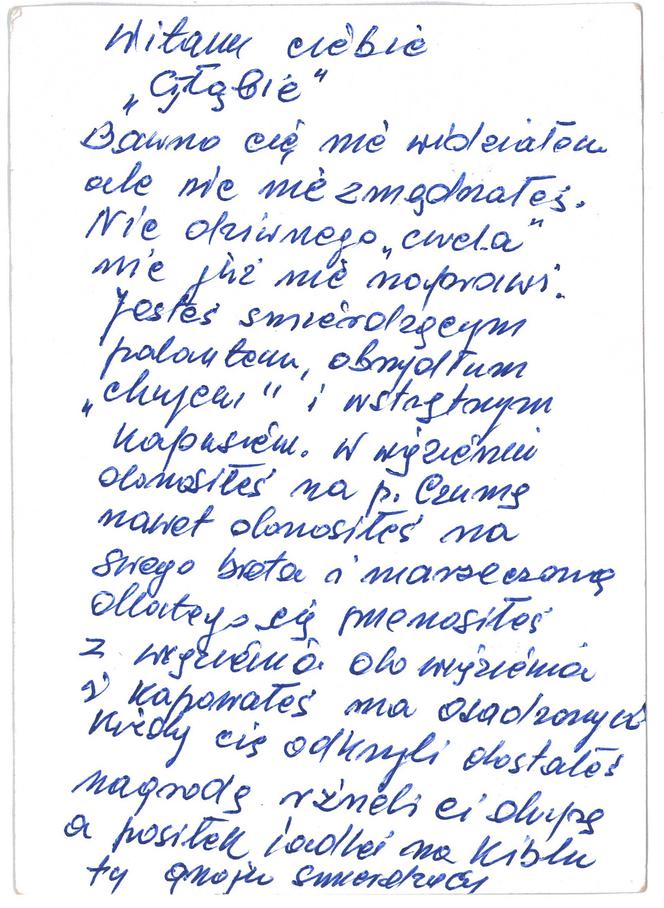 Witam ciebie
„Głąbie"
Dawno cię nie widziałem
ale nic nie zmądrzałeś.
Nic dziwnego „cwela"
nic już nie naprawi.
Jesteś śmierdzącym
palantem, obrzydłym
„chujem" i wstrętnym
kapusiem. W więzieniu
donosiłeś na p. Czumę
nawet donosiłeś na
swego brata i narzeczoną
dlatego się przenosiłeś
z więzienia do więzienia
i kapowałeś na osadzonych
Kiedy cię odkryli dostałeś
nagrodę rżneli ci dupę
a posiłek jadłeś na kiblu
ty gnoju śmierdzący